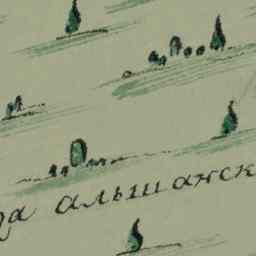 да альшанск